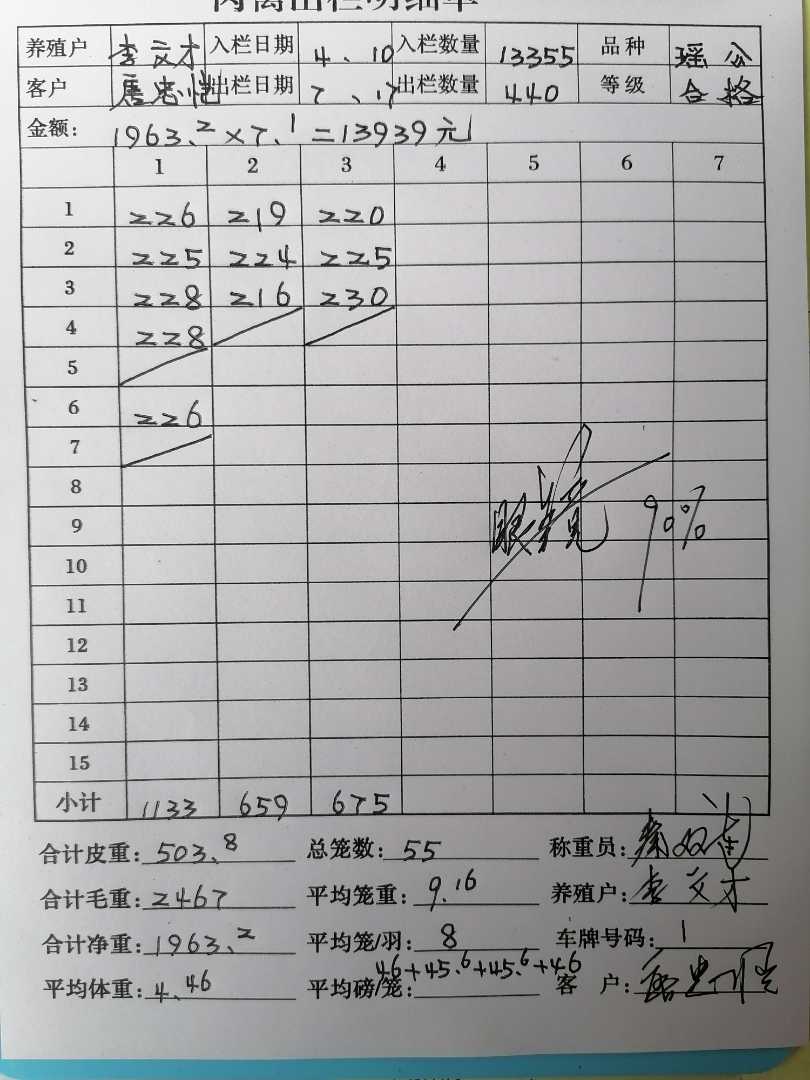 肉禽出栏明细单
养殖户 李文才 入栏日期 4、10 入栏数量 13355 品种 瑶公
客户 唐忠恺 出栏日期 7、17 出栏数量 440 等级 合格
金额: 1963.2×7.1=13939元
1 2 3 4 5 6 7
1 226 219 220
2 225 224 225
3 228 216 230
4 228
5
6 226
7
8
9 90%
10
11
12
13
14
15
小计 1133 659 675
合计皮重: 503.8 总笼数: 55 称重员:
合计毛重: 2467 平均笼重: 9.16 养殖户: 李文才
合计净重: 1963.2 平均笼/羽: 8 车牌号码: 1
46+45.6+45.6+46
平均体重: 4.46 平均磅/笼: 客 户: